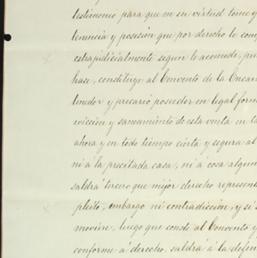 testimonio para que en su virtud tome y
tenencia y posesión que por derecho le com
extrajudicialmente segun le acomode, y en
hace, constituye al Convento de la Encar
tenedor y precario poseedor en legal forma
evicción y saneamiento de esta venta en to
ahora y en todo tiempo cierta y segura al
ni á la precitada casa, ni á cosa alguna
saldrá tercero que mejor derecho represente
pleito, embargo ni contradicción, y si se
moviere, luego que conste al Convento y
conforme á derecho, saldrá á la defen